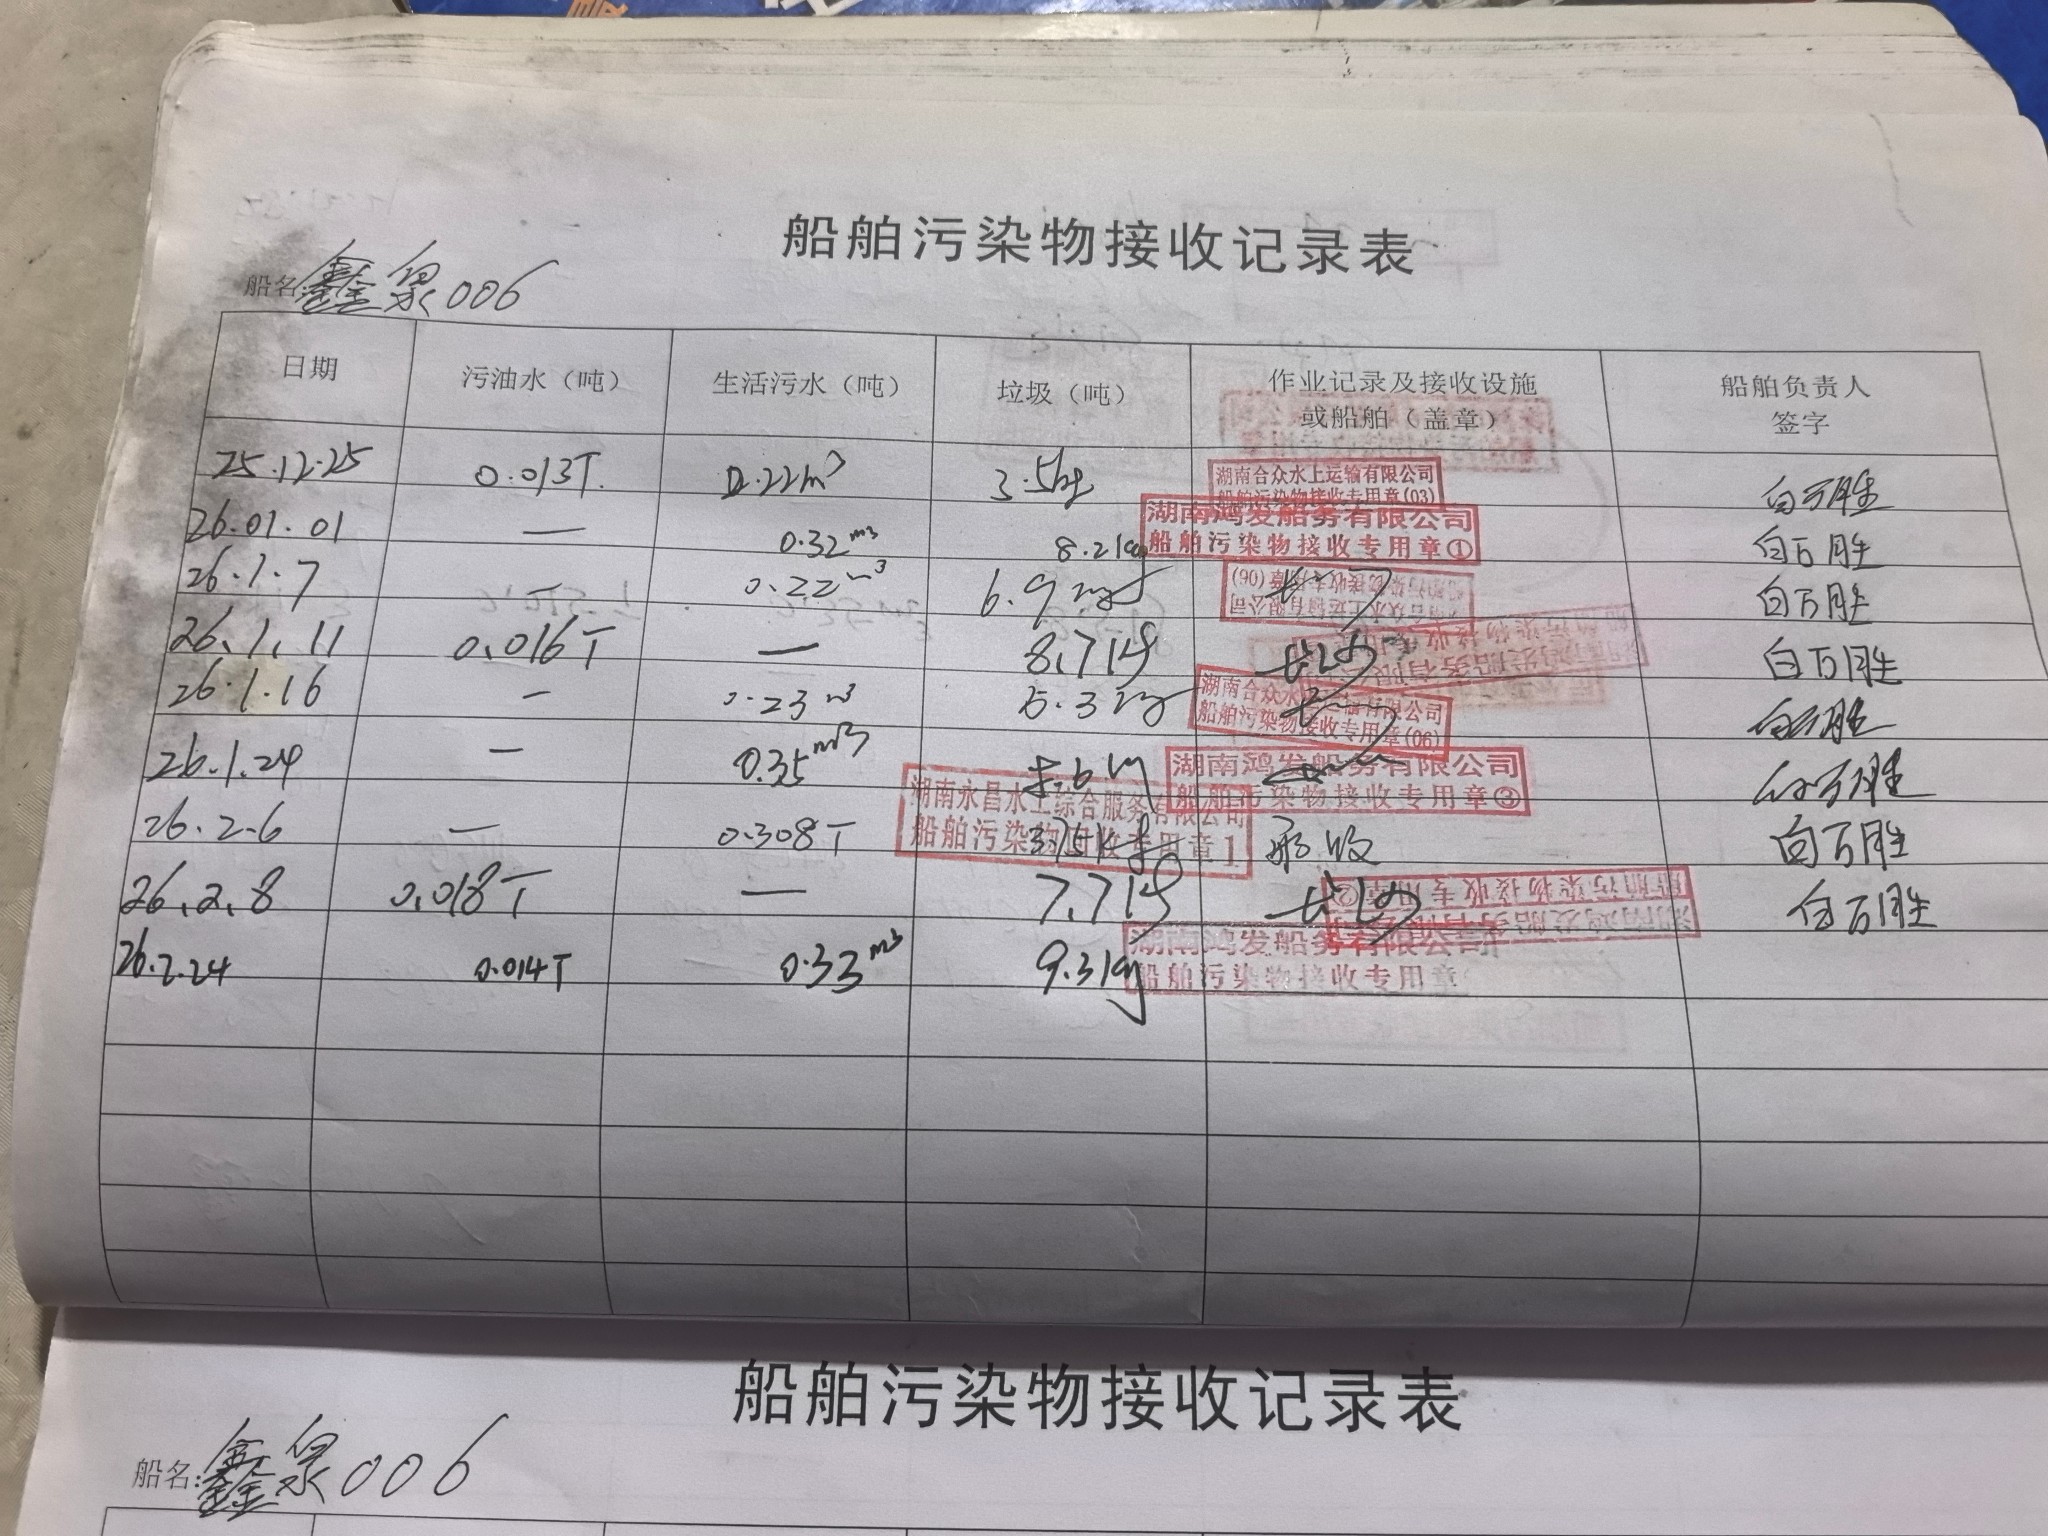 船舶污染物接收记录表
船名:鑫泉006
日期 污油水（吨） 生活污水（吨） 垃圾（吨） 作业记录及接收设施或船舶（盖章） 船舶负责人签字
25.12.25 0.013T. 0.22m³ 3.5kg 湖南合众水上运输有限公司 船舶污染物接收专用章(03) 白万胜
26.01.01 — 0.32m³ 8.2kg 湖南鸿发船务有限公司 船舶污染物接收专用章① 白万胜
26.1.7 — 0.22m³ 6.9kg 合众水上运输有限公司 (06) 白万胜
26.1.11 0.016T — 8.7kg 长沙 白万胜
26.1.16 — 0.23m³ 5.3kg 湖南合众水上运输有限公司 船舶污染物接收专用章(06) 白万胜
26.1.24 — 0.35m³ 湖南鸿发船务有限公司 船舶污染物接收专用章③ 白万胜
26.2.6 — 0.308T 湖南永昌水上综合服务有限公司 船舶污染物接收专用章1 白万胜
26.2.8 0.018T — 7.7kg 长沙 湖南鸿发船务有限公司 船舶污染物接收专用章② 白万胜
26.2.24 0.014T 0.33m³ 9.3kg 湖南鸿发船务有限公司 船舶污染物接收专用章
船舶污染物接收记录表
船名:鑫泉006